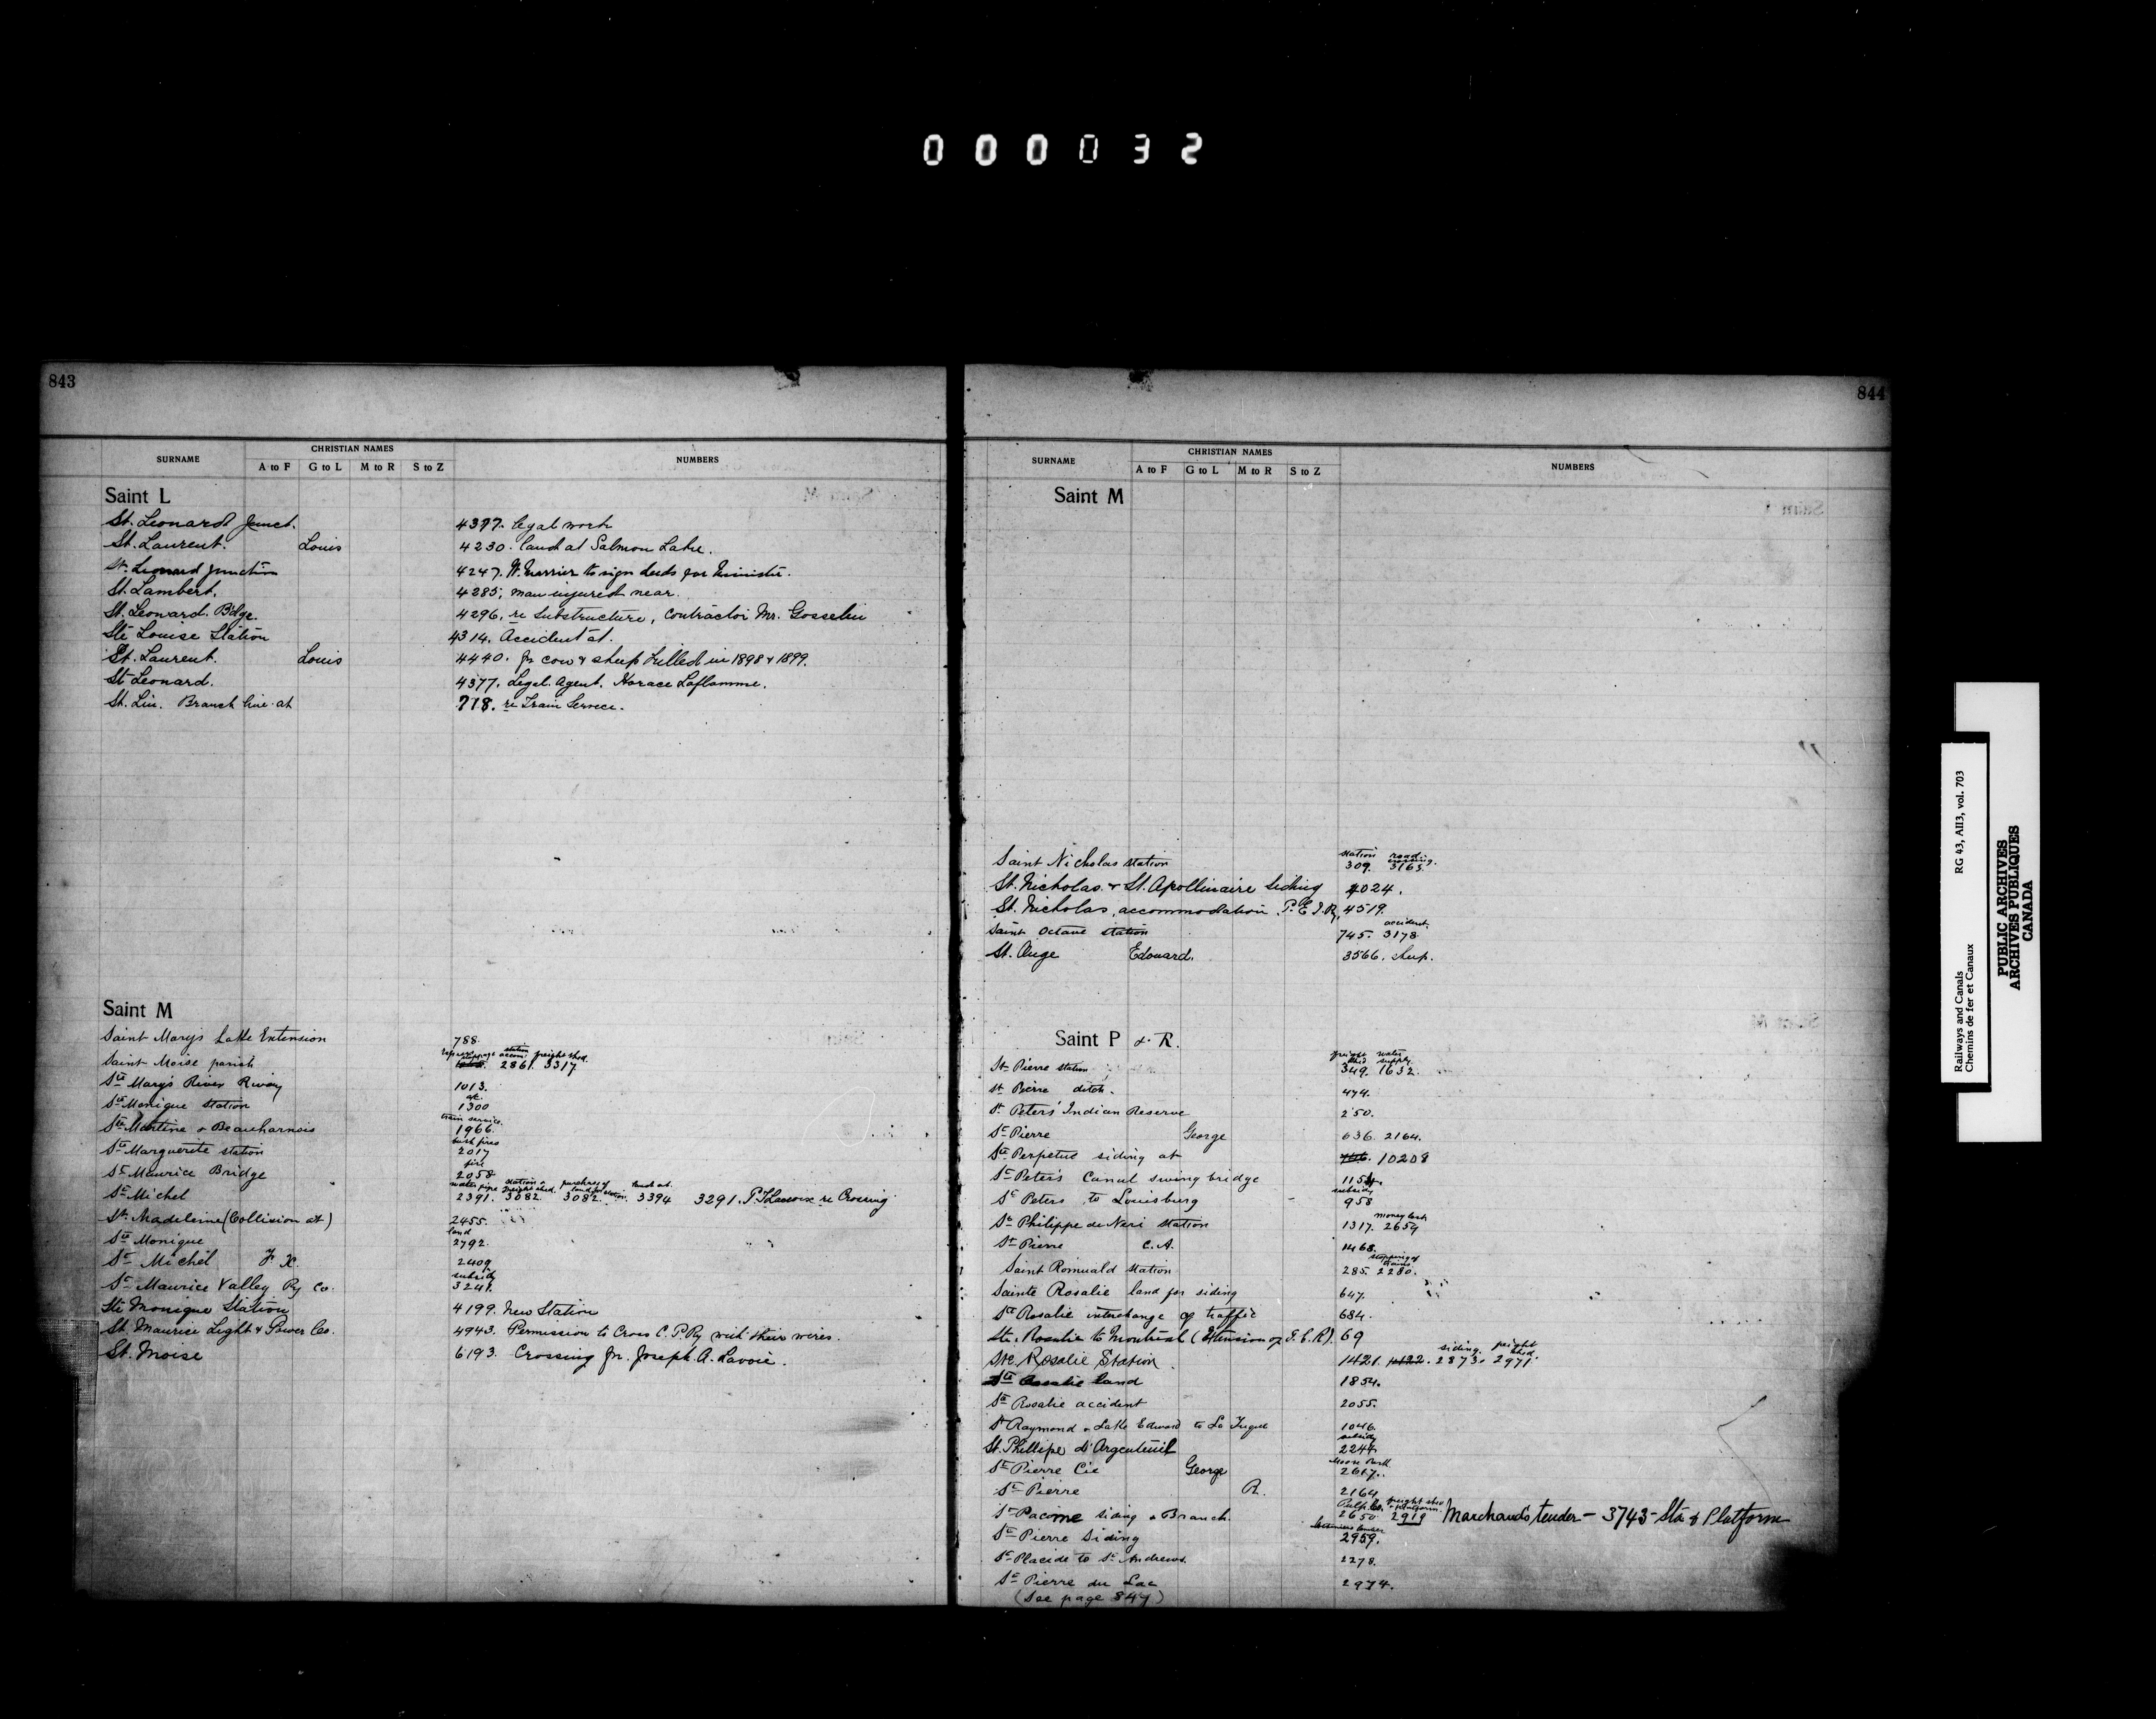 000032
843
SURNAME CHRISTIAN NAMES NUMBERS
A to F G to L M to R S to Z
Saint L
St. Leonard Junct. 4377. legal work
St. Laurent. Louis 4230. land at Salmon Lake.
St. Leonard Junction 4247. to sign deeds for Minister.
St. Lambert. 4285; man injured near.
St. Leonard. Bdge. 4296. re Substructure, Contractor Mr. Gosselin
Ste Louise Station 4314. Accident at.
St. Laurent. Louis 4440. for cow & sheep killed in 1898 & 1899.
St Leonard. 4377. Legal. Agent. Horace Laflamme.
St. Lin. Branch line at 718. re Train Service.
Saint M
Saint Mary's Lake Extension 788
Saint Moise parish station accom: 2861. freight shed. 3317
Ste Mary's River Rway 1013.
Ste Monique station at. 1300
Ste Martine & Beauharnois train service. 1966.
Ste Marguerite station bush fires 2017
St Maurice Bridge fire 2058
St Michel water pipe 2391. station & freight shed. 3082. purchase of land for station. 3082. 3394 3291. re Crossing
St. Madeleine (Collision at) 2455.
Ste Monique land 2792.
St Michel F. X. 2409
St Maurice Valley Ry Co. subsidy 3241.
Ste Monique Station 4199. New Station
St. Maurice Light & Power Co. 4943. Permission to Cross C.P.Ry with their wires.
St. Moise 6193. Crossing for. Joseph. A. Lavoie.
844
SURNAME CHRISTIAN NAMES NUMBERS
A to F G to L M to R S to Z
Saint M
Saint Nicholas station station 309. 3163.
St. Nicholas & St. Apollinaire siding 4024.
St. Nicholas, accommodation P.E.I.Ry. 4519.
Saint Octave station 745. accident. 3178
St. Ange Edouard. 3566. sheep.
Saint P & R.
St Pierre station freight shed 349. water supply. 1632.
St Pierre ditch. 474.
St Peters' Indian Reserve 250.
St Pierre George 636. 2164.
Ste Perpetue siding at 10208
St Peter's Canal swing bridge 1154
St Peters to Louisburg subsidy 958
St Philippe de Neri station 1317. money lost 2659
St Pierre C.A. 1468.
Saint Romuald station 285. stopping of trains 2280.
Sainte Rosalie land for siding 647.
Ste Rosalie interchange of traffic 684.
Ste. Rosalie to Montreal (Extension of I.C.R). 69
Ste. Rosalie Station 1421. 1422. siding. 2873. freight shed. 2971.
Ste Rosalie land 1854.
Ste Rosalie accident 2055.
St Raymond & Lake Edward to La Tuque 1046.
St. Phillipe d'Argenteuil subsidy 2244
St Pierre Cie George 2617.
St Pierre R. 2164
St Pacome siding & Branch. Pulp Co. 2650 freight shed & platform. 2919 Marchand's tender - 3743 - Sta. & Platform
St Pierre Siding 2959.
St Placide to St Andrews. 2278.
St Pierre du Lac 2974.
(See page 847)
Railways and Canals RG 43, AII3, vol. 703
Chemins de fer et Canaux
PUBLIC ARCHIVES
ARCHIVES PUBLIQUES
CANADA